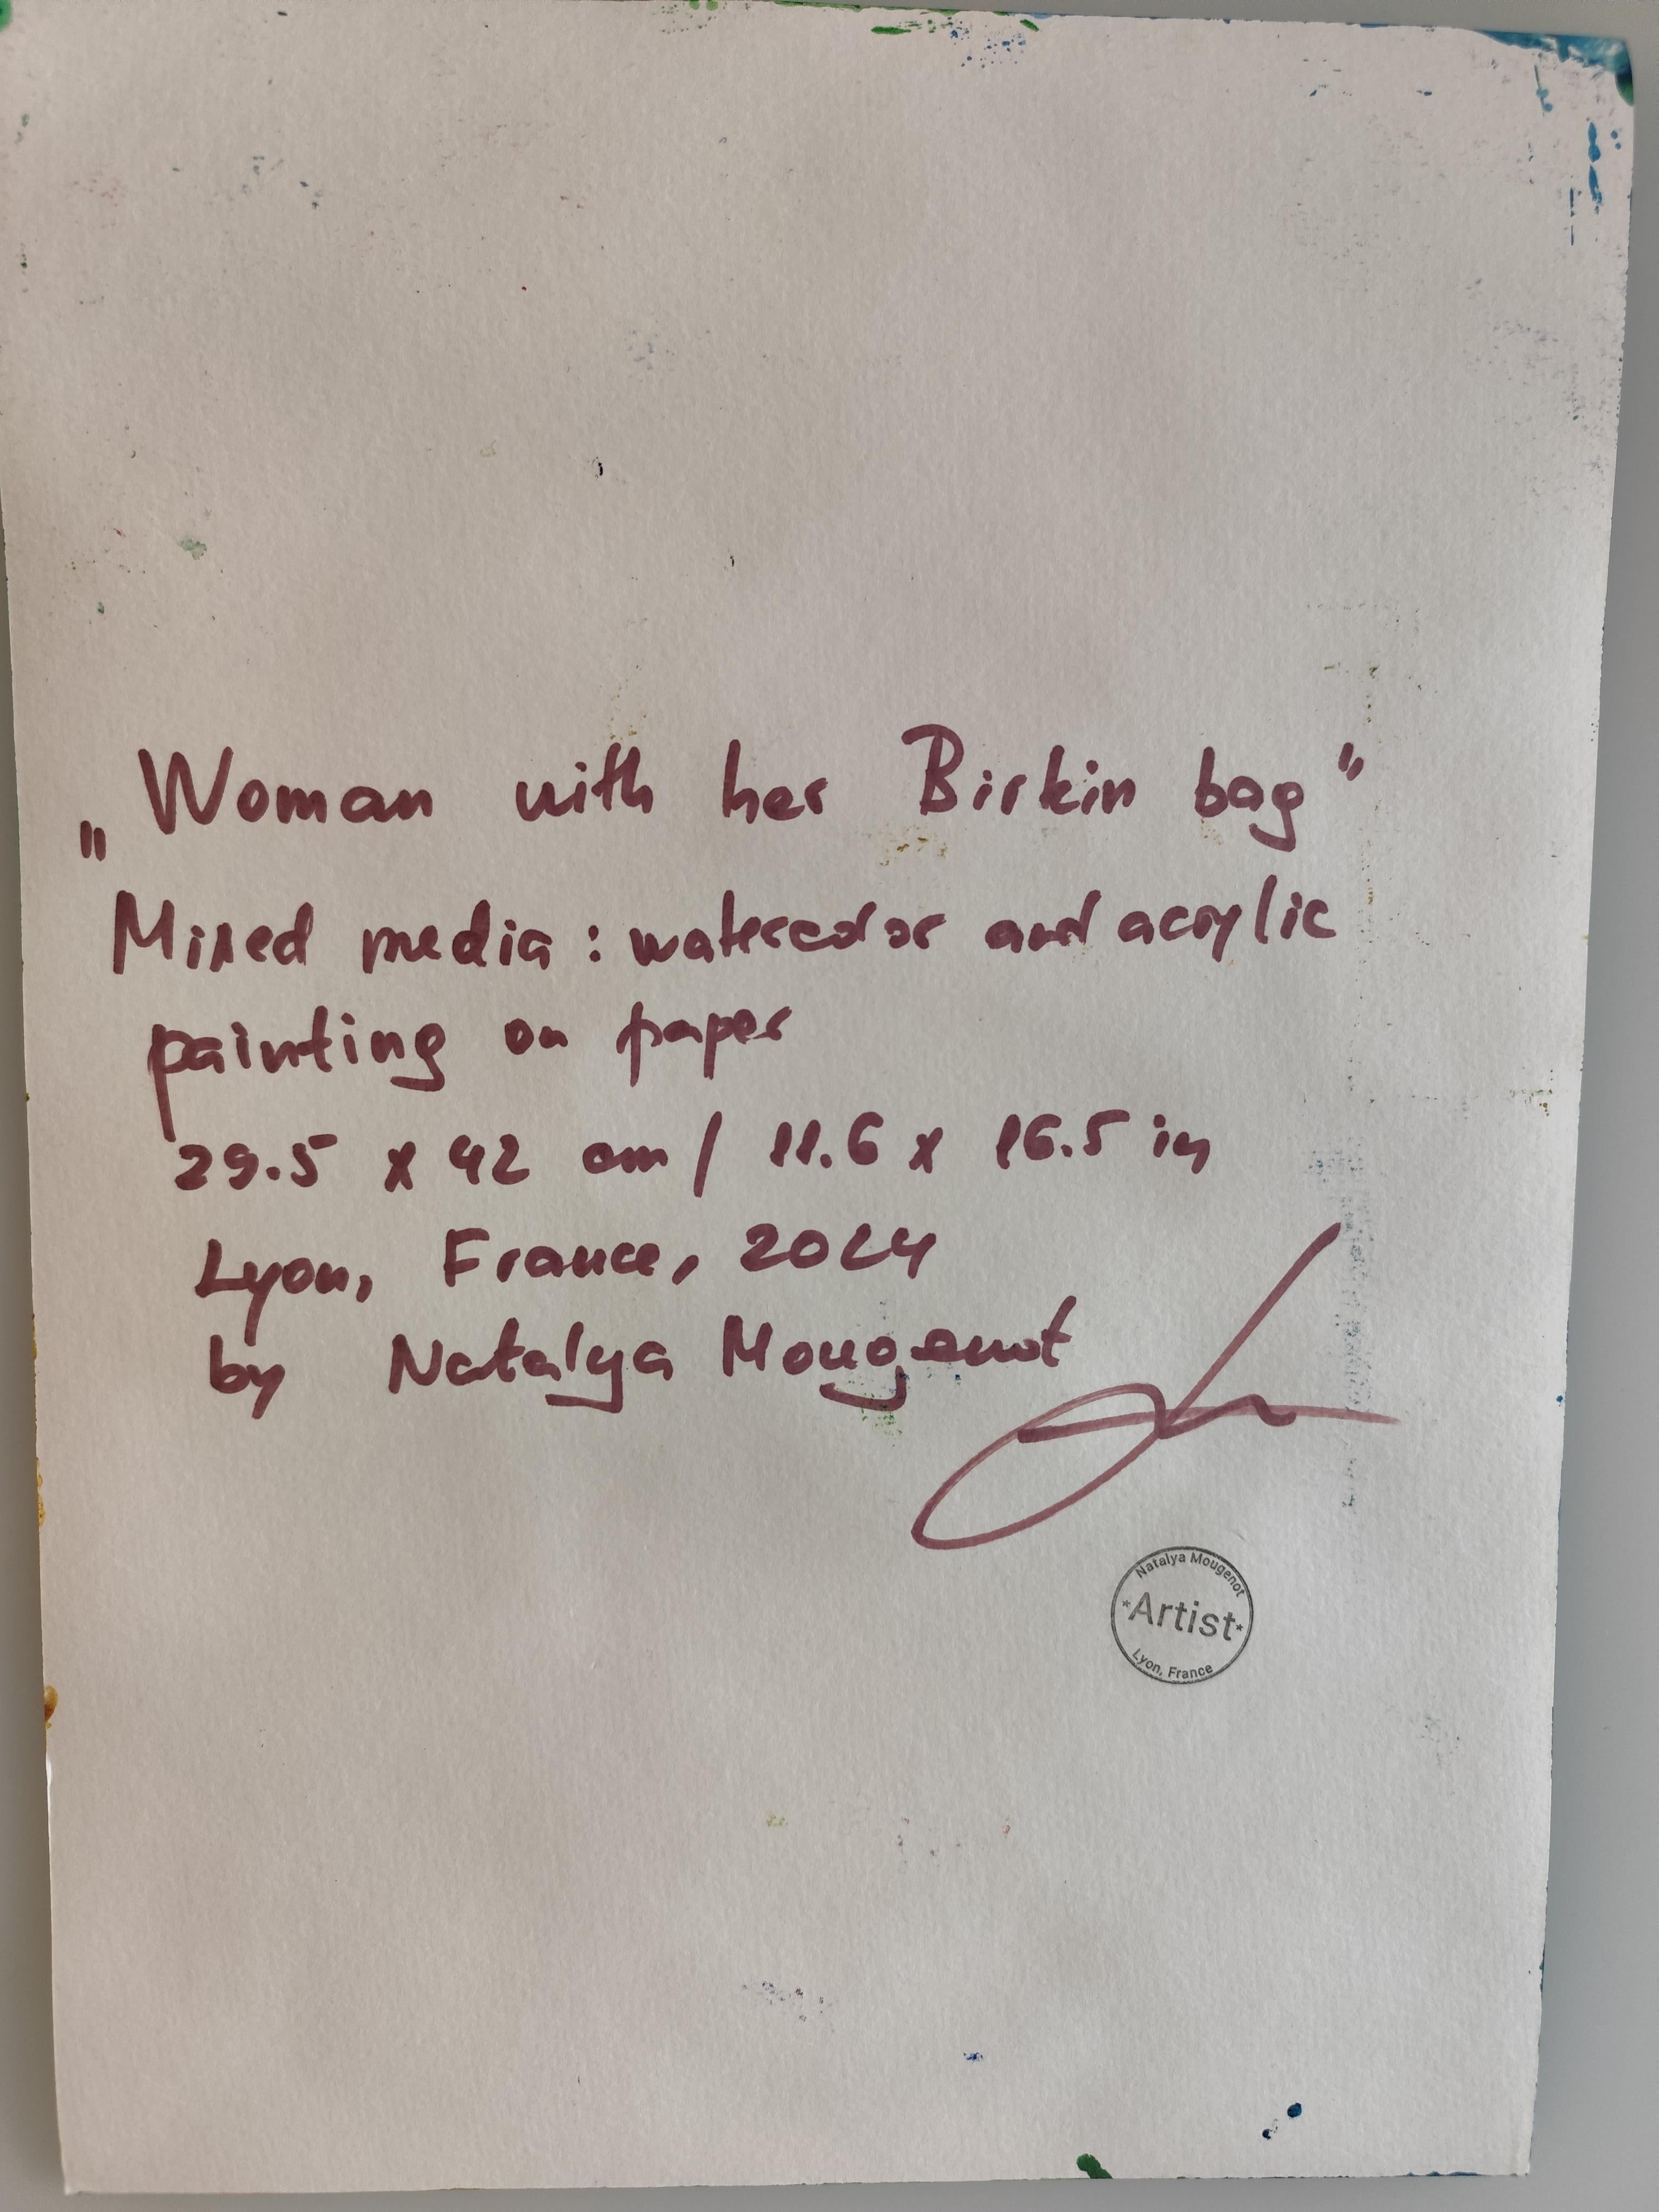 „Woman with her Birkin bag"
Mixed media: watercolor and acrylic
painting on paper
29.5 x 42 cm / 11.6 x 16.5 in
Lyon, France, 2024
by Natalya Mougenot
Natalya Mougenot
*Artist*
Lyon, France